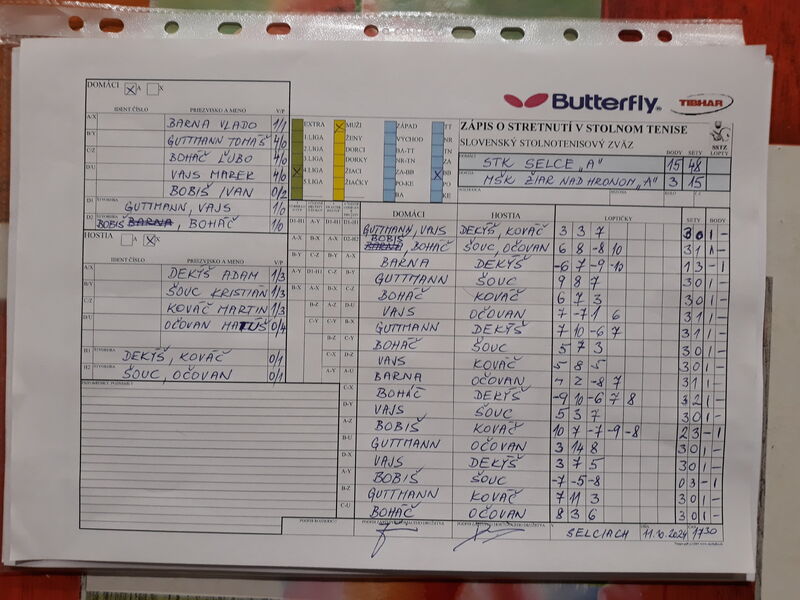 Butterfly
TIBHAR
DOMÁCI X A X
IDENT ČÍSLO PRIEZVISKO A MENO V/P
A/X BARNA VLADO 1/1
B/Y GUTTMANN TOMÁŠ 4/0
C/Z BOHÁČ ĽUBO 4/0
D/U VAJS MAREK 4/0
BOBIŠ IVAN 0/2
D1 ŠTVORHRA GUTTMANN, VAJS 1/0
D2 BOBIŠ BARNA, BOHÁČ 1/0
HOSTIA A X X
IDENT ČÍSLO PRIEZVISKO A MENO V/P
A/X DEKÝŠ ADAM 1/3
B/Y ŠOUC KRISTIÁN 1/3
C/Z KOVÁČ MARTIN 1/3
D/U OČOVAN MATÚŠ 0/4
H1 ŠTVORHRA DEKÝŠ, KOVÁČ 0/1
H2 ŠTVORHRA ŠOUC, OČOVAN 0/1
PRIPOMIENKY, POZNÁMKY
EXTRA X MUŽI ZÁPAD TT
1.LIGA ŽENY VÝCHOD NR
2.LIGA DORCI BA-TT ZA
3.LIGA DORKY NR-TN ZA
X 4.LIGA ŽIACI ZA-BB X BB
5.LIGA ŽIAČKY PO-KE PO
BA KE
ZÁPIS O STRETNUTÍ V STOLNOM TENISE
SLOVENSKÝ STOLNOTENISOVÝ ZVÄZ
SSTZ
BODY SETY LOPTY
DOMÁCI STK SELCE "A" 15 48
HOSTIA MŠK ŽIAR NAD HRONOM "A" 3 15
DOMÁCI HOSTIA LOPTIČKY SETY BODY
GUTTMANN, VAJS DEKÝŠ, KOVÁČ 3 3 7 3 0 1 -
BOBIŠ BARNA, BOHÁČ ŠOUC, OČOVAN 6 8 -8 10 3 1 1 -
BARNA DEKÝŠ -6 7 -9 -10 1 3 - 1
GUTTMANN ŠOUC 9 8 7 3 0 1 -
BOHÁČ KOVÁČ 6 7 3 3 0 1 -
VAJS OČOVAN 7 -7 1 6 3 1 1 -
GUTTMANN DEKÝŠ 7 10 -6 7 3 1 1 -
BOHÁČ ŠOUC 5 7 3 3 0 1 -
VAJS KOVÁČ 5 8 5 3 0 1 -
BARNA OČOVAN 2 -8 7 3 1 1 -
BOHÁČ DEKÝŠ -9 10 -6 7 8 3 2 1 -
VAJS ŠOUC 5 3 7 3 0 1 -
BOBIŠ KOVÁČ 10 7 -7 -9 -8 2 3 - 1
GUTTMANN OČOVAN 3 14 8 3 0 1 -
VAJS DEKÝŠ 3 7 5 3 0 1 -
BOBIŠ ŠOUC -7 -5 -8 0 3 - 1
GUTTMANN KOVÁČ 7 11 3 3 0 1 -
BOHÁČ OČOVAN 8 3 6 3 0 1 -
PODPIS ROZHODCU PODPIS ZÁSTUPCU HOSŤUJÚCEHO DRUŽSTVA
SELCIACH 11.10.2024 1730